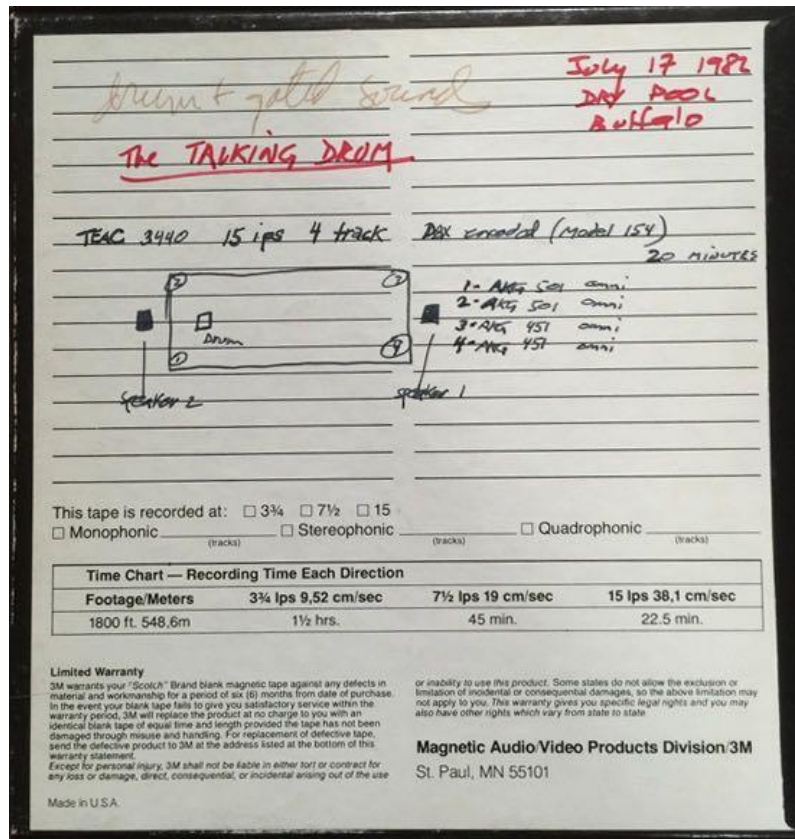 July 17 1982
DRY POOL
Buffalo
drum + gated sound
The TALKING DRUM
TEAC 3440 15 ips 4 track DBX encoded (Model 154)
20 MINUTES
2 3
1 - AKG 501 omni
2 - AKG 501 omni
3 - AKG 451 omni
4 - AKG 451 omni
Drum
1 4
Speaker 2 speaker 1
This tape is recorded at: □ 3¾ □ 7½ □ 15
□ Monophonic (tracks) □ Stereophonic (tracks) □ Quadrophonic (tracks)
Time Chart — Recording Time Each Direction
Footage/Meters 3¾ Ips 9,52 cm/sec 7½ Ips 19 cm/sec 15 Ips 38,1 cm/sec
1800 ft. 548,6m 1½ hrs. 45 min. 22.5 min.
Limited Warranty
3M warrants your "Scotch" Brand blank magnetic tape against any defects in
material and workmanship for a period of six (6) months from date of purchase.
In the event your blank tape fails to give you satisfactory service within the
warranty period, 3M will replace the product at no charge to you with an
identical blank tape of equal time and length provided the tape has not been
damaged through misuse and handling. For replacement of defective tape,
send the defective product to 3M at the address listed at the bottom of this
warranty statement.
Except for personal injury, 3M shall not be liable in either tort or contract for
any loss or damage, direct, consequential, or incidental arising out of the use
or inability to use this product. Some states do not allow the exclusion or
limitation of incidental or consequential damages, so the above limitation may
not apply to you. This warranty gives you specific legal rights and you may
also have other rights which vary from state to state.
Magnetic Audio/Video Products Division/3M
St. Paul, MN 55101
Made in U.S.A.